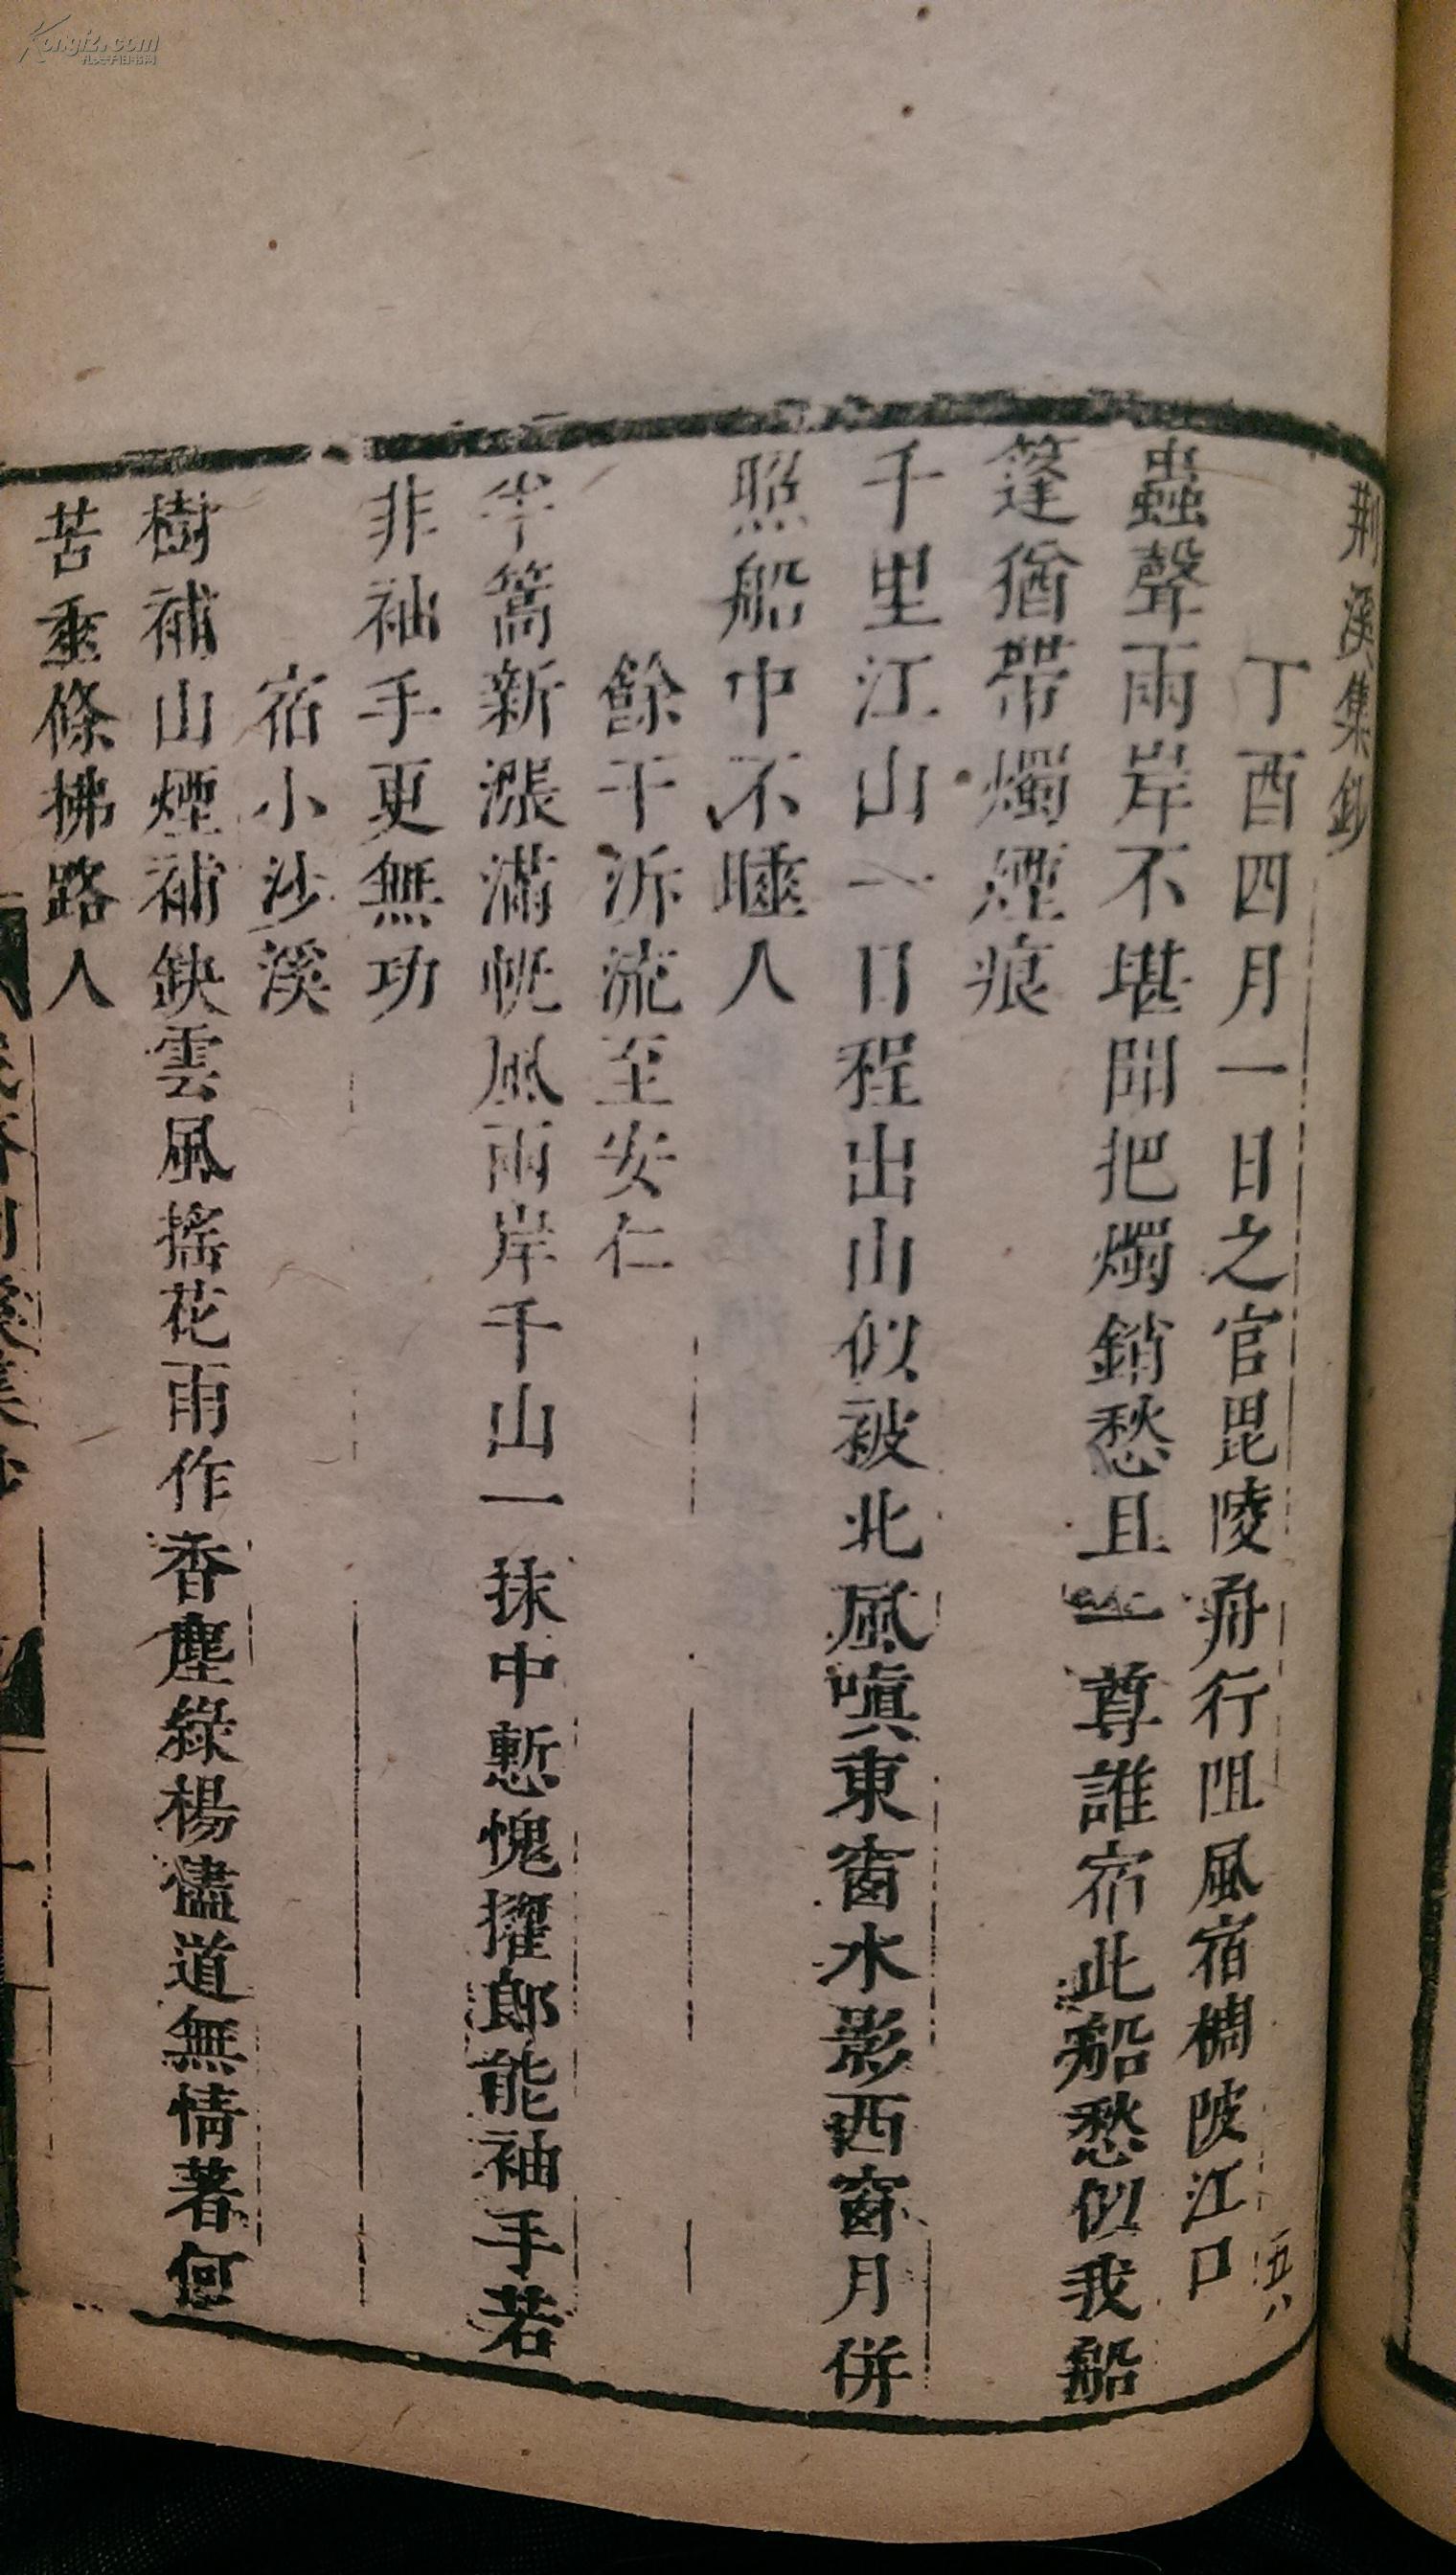 荆溪集鈔
丁酉四月一日之官毘陵舟行阻風宿椆陂江口
五八
蟲聲兩岸不堪聞把燭銷愁且一尊誰宿此船愁似我船
篷猶帶燭煙痕
千里江山一日程出山似被北風嗔東窗水影西窗月併
照船中不睡人
餘干泝流至安仁
半篙新漲滿帆風兩岸千山一抹中慙愧擢郎能袖手若
非袖手更無功
宿小沙溪
樹補山煙補缺雲風搖花雨作香塵綠楊儘道無情著何
苦垂條拂路人
Kongfz.com
孔夫子旧书网